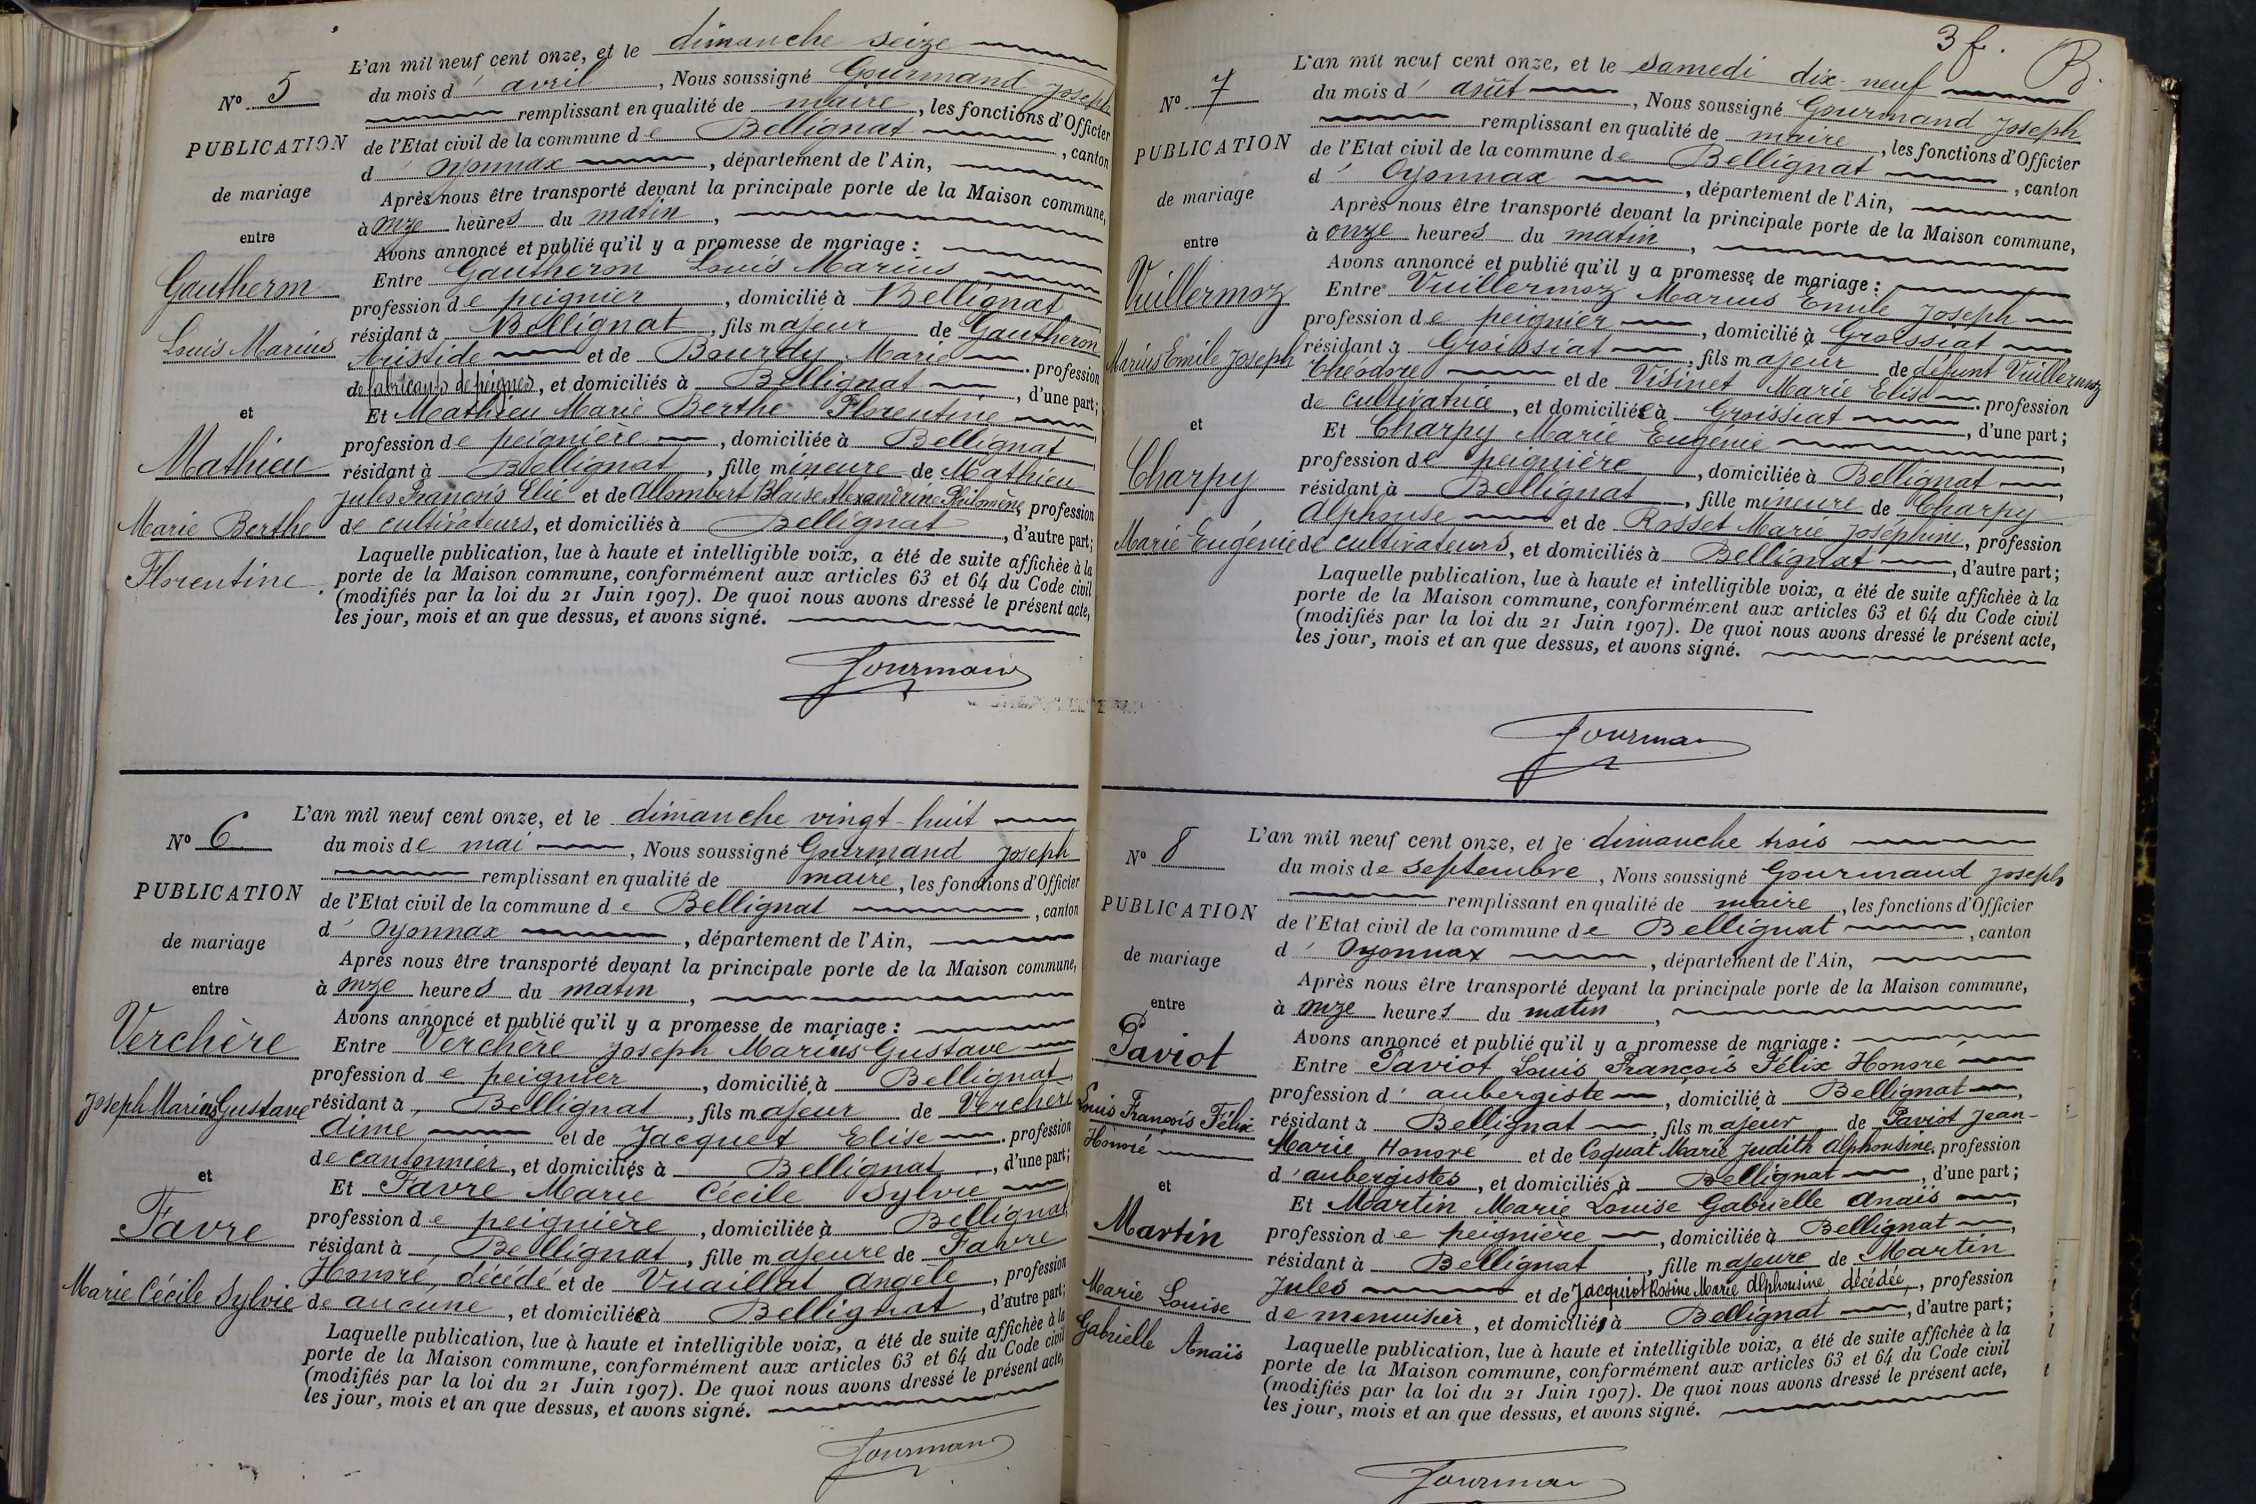 N° 5
PUBLICATION
de mariage
entre
Gautheron
Louis Marius
et
Mathieu
Marie Berthe
Florentine.
L'an mil neuf cent onze, et le dimanche seize
du mois d' avril, Nous soussigné Gourmand Joseph
remplissant en qualité de maire, les fonctions d'Officier
de l'Etat civil de la commune de Bellignat, canton
d' Oyonnax, département de l'Ain,
Après nous être transporté devant la principale porte de la Maison commune,
à onze heures du matin,
Avons annoncé et publié qu'il y a promesse de mariage :
Entre Gautheron Louis Marius
profession de peignier, domicilié à Bellignat
résidant à Bellignat, fils majeur de Gautheron
Aristide et de Bourdy Marie. profession
de fabricants de peignes, et domiciliés à Bellignat, d'une part;
Et Mathieu Marie Berthe Florentine
profession de peignière, domiciliée à Bellignat
résidant à Bellignat, fille mineure de Mathieu
Jules François Elie et de Allombert Blaise Alexandrine Philomène profession
de cultivateurs, et domiciliés à Bellignat, d'autre part;
Laquelle publication, lue à haute et intelligible voix, a été de suite affichée à la
porte de la Maison commune, conformément aux articles 63 et 64 du Code civil
(modifiés par la loi du 21 Juin 1907). De quoi nous avons dressé le présent acte,
les jour, mois et an que dessus, et avons signé.
Gourmand
N° 6
PUBLICATION
de mariage
entre
Verchère
Joseph Marius Gustave
et
Favre
Marie Cécile Sylvie
L'an mil neuf cent onze, et le dimanche vingt-huit
du mois de mai, Nous soussigné Gourmand Joseph
remplissant en qualité de maire, les fonctions d'Officier
de l'Etat civil de la commune de Bellignat, canton
d' Oyonnax, département de l'Ain,
Après nous être transporté devant la principale porte de la Maison commune,
à onze heures du matin,
Avons annoncé et publié qu'il y a promesse de mariage :
Entre Verchère Joseph Marius Gustave
profession de peignier, domicilié à Bellignat
résidant à Bellignat, fils majeur de Verchère
Dime et de Jacquet Elise. profession
de cantonnier, et domiciliés à Bellignat, d'une part;
Et Favre Marie Cécile Sylvie
profession de peignière, domiciliée à Bellignat
résidant à Bellignat, fille majeure de Favre
Honoré, décédé et de Vuaillat Angèle, profession
de aucune, et domiciliée à Bellignat, d'autre part;
Laquelle publication, lue à haute et intelligible voix, a été de suite affichée à la
porte de la Maison commune, conformément aux articles 63 et 64 du Code civil
(modifiés par la loi du 21 Juin 1907). De quoi nous avons dressé le présent acte,
les jour, mois et an que dessus, et avons signé.
Gourmand
3 f.
N° 7
PUBLICATION
de mariage
entre
Vuillermoz
Marius Emile Joseph
et
Charpy
Marie Eugénie
L'an mil neuf cent onze, et le samedi dix-neuf
du mois d' août, Nous soussigné Gourmand Joseph
remplissant en qualité de maire, les fonctions d'Officier
de l'Etat civil de la commune de Bellignat, canton
d' Oyonnax, département de l'Ain,
Après nous être transporté devant la principale porte de la Maison commune,
à onze heures du matin,
Avons annoncé et publié qu'il y a promesse de mariage :
Entre Vuillermoz Marius Emile Joseph
profession de peignier, domicilié à Groissiat
résidant à Groissiat, fils majeur de défunt Vuillermoz
Théodore et de Visinet Marie Elise. profession
de cultivatrice, et domiciliée à Groissiat, d'une part;
Et Charpy Marie Eugénie,
profession de peignière, domiciliée à Bellignat,
résidant à Bellignat, fille mineure de Charpy
Alphonse et de Rosset Marie Joséphine, profession
de cultivateurs, et domiciliés à Bellignat, d'autre part;
Laquelle publication, lue à haute et intelligible voix, a été de suite affichée à la
porte de la Maison commune, conformément aux articles 63 et 64 du Code civil
(modifiés par la loi du 21 Juin 1907). De quoi nous avons dressé le présent acte,
les jour, mois et an que dessus, et avons signé.
Gourmand
N° 8
PUBLICATION
de mariage
entre
Paviot
Louis François Félix
Honoré
et
Martin
Marie Louise
Gabrielle Anaïs
L'an mil neuf cent onze, et le dimanche trois
du mois de septembre, Nous soussigné Gourmand Joseph
remplissant en qualité de maire, les fonctions d'Officier
de l'Etat civil de la commune de Bellignat, canton
d' Oyonnax, département de l'Ain,
Après nous être transporté devant la principale porte de la Maison commune,
à onze heures du matin,
Avons annoncé et publié qu'il y a promesse de mariage :
Entre Paviot Louis François Félix Honoré
profession d' aubergiste, domicilié à Bellignat,
résidant à Bellignat, fils majeur de Paviot Jean-
Marie Honoré et de Coquat Marie Judith Alphonsine. profession
d' aubergistes, et domiciliés à Bellignat, d'une part;
Et Martin Marie Louise Gabrielle Anaïs,
profession de peignière, domiciliée à Bellignat,
résidant à Bellignat, fille majeure de Martin
Jules et de Jacquiot Rosine Marie Alphonsine, décédée, profession
de menuisier, et domicilié à Bellignat, d'autre part;
Laquelle publication, lue à haute et intelligible voix, a été de suite affichée à la
porte de la Maison commune, conformément aux articles 63 et 64 du Code civil
(modifiés par la loi du 21 Juin 1907). De quoi nous avons dressé le présent acte,
les jour, mois et an que dessus, et avons signé.
Gourmand